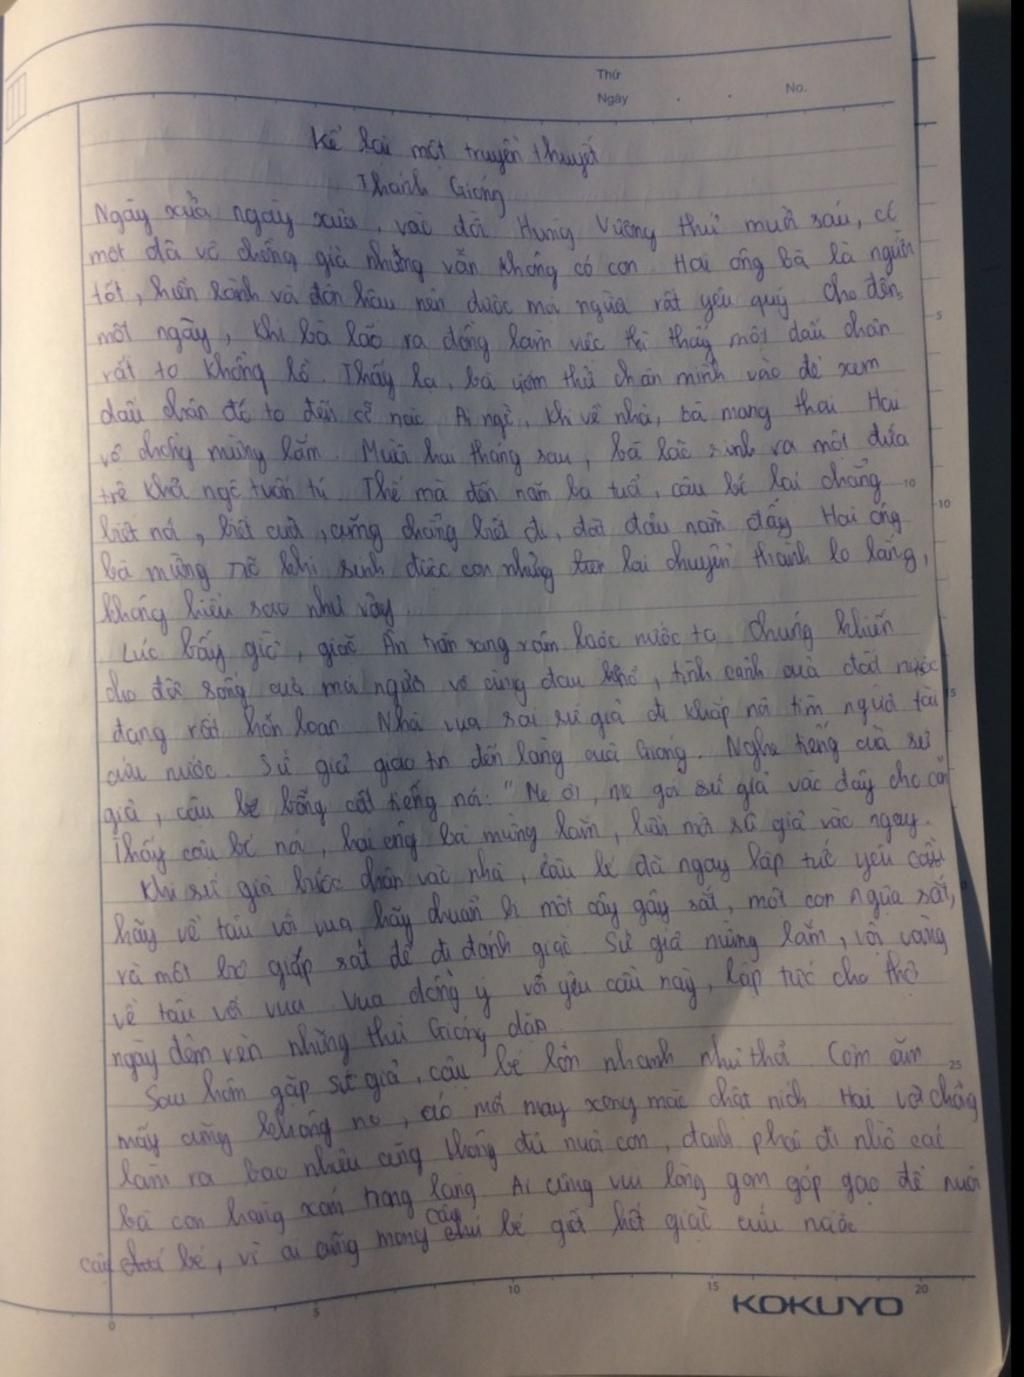 Thứ
Ngày . . No.
Kể lại một truyền thuyết
Thánh Gióng
Ngày xửa ngày xưa, vào đời Hùng Vương thứ mười sáu, có
một đôi vợ chồng già nhưng vẫn không có con. Hai ông bà là người
tốt, hiền lành và đôn hậu nên được mọi người rất yêu quý. Cho đến
một ngày, khi bà lão ra đồng làm việc thì thấy một dấu chân
rất to khổng lồ. Thấy lạ, bà ướm thử chân mình vào để xem
dấu chân đó to đến cỡ nào. Ai ngờ, khi về nhà, bà mang thai. Hai
vợ chồng mừng lắm. Mười hai tháng sau, bà lão sinh ra một đứa
trẻ khôi ngô tuấn tú. Thế mà đến năm ba tuổi, cậu bé lại chẳng
biết nói, biết cười, cũng chẳng biết đi, đặt đâu nằm đấy. Hai ông
bà mừng rỡ khi sinh được con nhưng lại chuyển thành lo lắng,
không hiểu sao như vậy.
Lúc bấy giờ, giặc Ân tràn sang xâm lược nước ta. Chúng khiến
cho đời sống của mọi người vô cùng đau khổ, tình cảnh của đất nước
đang rất hỗn loạn. Nhà vua sai sứ giả đi khắp nơi tìm người tài
cứu nước. Sứ giả giao tin đến làng của Gióng. Nghe tiếng của sứ
giả, cậu bé bỗng cất tiếng nói: "Mẹ ơi, mẹ gọi sứ giả vào đây cho con
Thấy cậu bé nói, hai ông bà mừng lắm, liền mời sứ giả vào ngay.
Khi sứ giả bước chân vào nhà, cậu bé đã ngay lập tức yêu cầu
hãy về tâu với vua hãy chuẩn bị một cây gậy sắt, một con ngựa sắt,
và một bộ giáp sắt để đi đánh giặc. Sứ giả mừng lắm, vội vàng
về tâu với vua. Vua đồng ý với yêu cầu này, lập tức cho thợ
ngày đêm rèn những thứ Gióng dặn.
Sau hôm gặp sứ giả, cậu bé lớn nhanh như thổi. Cơm ăn
mấy cũng không no, áo mới may xong mặc chật ních. Hai vợ chồng
làm ra bao nhiêu cũng không đủ nuôi con, đành phải đi nhờ các
bà con hàng xóm trong làng. Ai cũng vui lòng gom góp gạo để nuôi
cậu bé, vì ai cũng mong cậu bé giết hết giặc cứu nước
5
10
10
15
25
0 5 10 15 20
KOKUYO